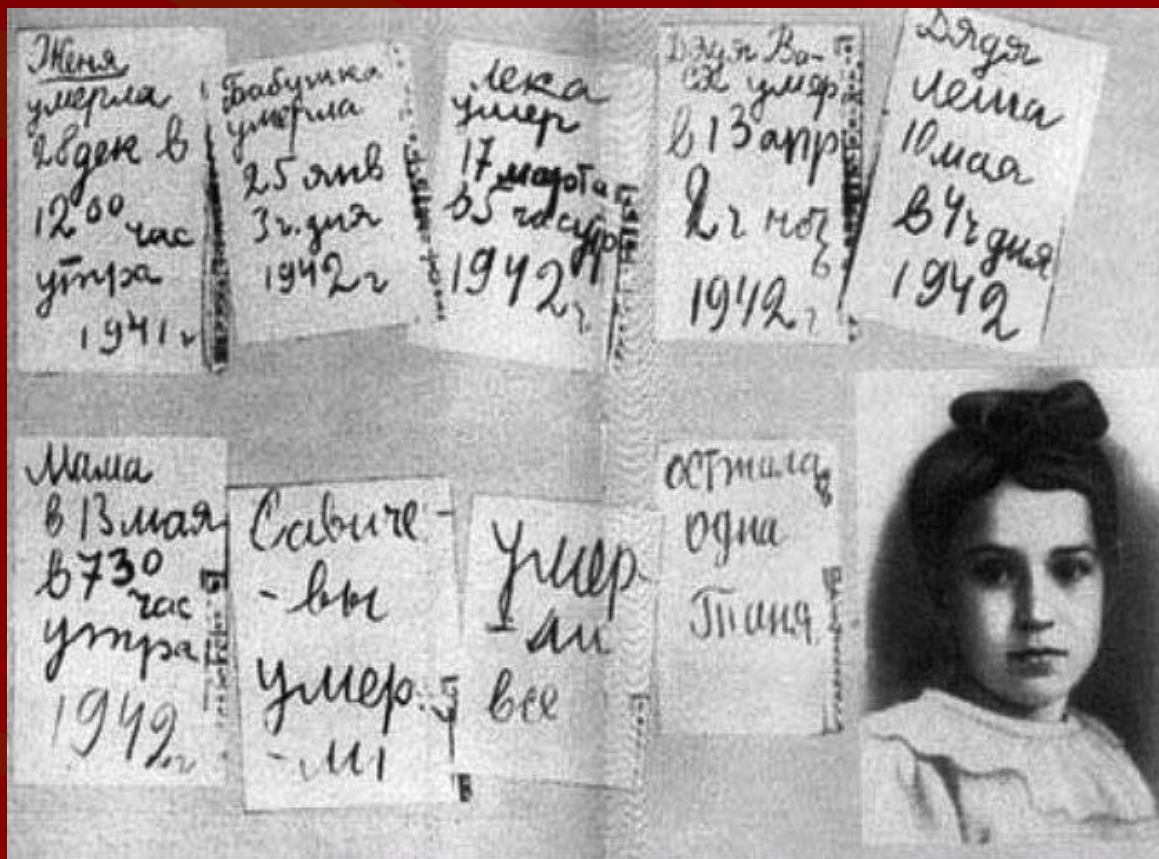 Женя
умерла
28 дек в
12 00 час
утра
1941 г
Бабушка
умерла
25 янв
3 ч. дня
1942 г
Лека
умер
17 марта
в 5 час утр
1942 г.
Дядя Ва-
ся умер
в 13 апр
2 ч ноч
1942 г
Дядя
Леша
10 мая
в 4 ч дня
1942
Мама
в 13 мая
в 7 30
час
утра
1942 г
Савиче-
-вы
умер-
-ли
умер-
-ли
все
осталась
одна
Таня